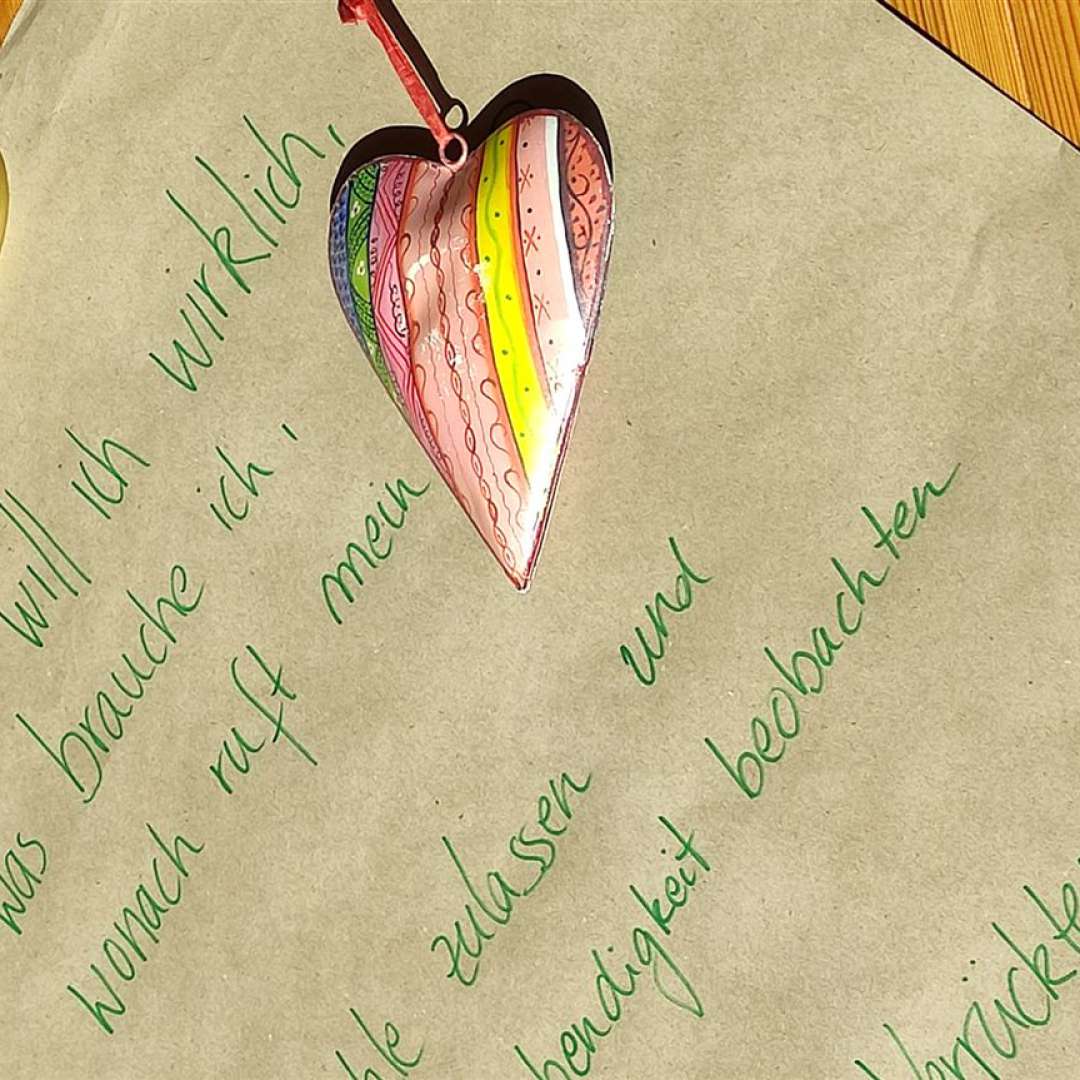 will ich wirklich,
was brauche ich,
wonach ruft mein
hle zulassen und
bendigkeit beobachten
verrückte